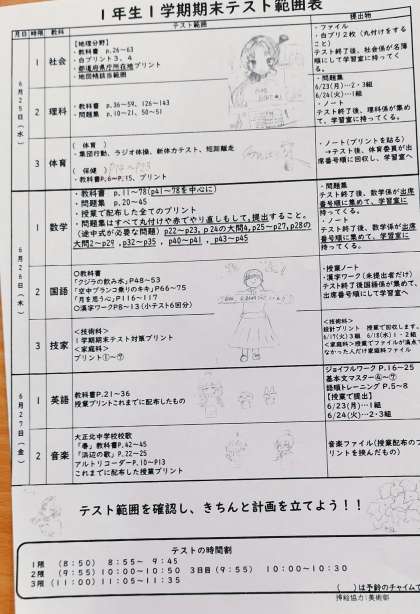 1年生1学期期末テスト範囲表
月日 時限 教科 テスト範囲 提出物
6月25日(水)
1 社会
【地理分野】
・教科書 p.26~63
・白プリント3、4
・都道府県庁所在地プリント
・地図帳該当範囲
・ファイル
・白プリ2枚(丸付けをすること)
テスト終了後、社会係が名簿順にして学習室に持ってくる。
2 理科
・教科書 p.36~59、126~143
・問題集 p.10~21、50~51
・問題集
6/23(月)…2・3組
6/24(火)…1組
・ノート
テスト終了後、理科係が集めて、学習室に持ってくる。
3 体育
(体育)
・集団行動、ラジオ体操、新体力テスト、短距離走
(保健)
・教科書P.6~P.15、プリント
・ノート(プリントを貼る)
→テスト後、体育委員が出席番号順に回収し、学習室へ
6月26日(木)
1 数学
・教科書 p.11~78(p41~78を中心に)
・問題集 p.20~45
・授業で配布した全てのプリント
・問題集はすべて丸付けや赤でやり直しもして、提出すること。
(途中式が必要な問題)p22~p23、p24の大問4、p25~p27、p28の大問2~p29、p32~p35、p40~p41、p43~p45
・問題集
テスト終了後、数学係が出席番号順に集めて、学習室に持ってくる。
・ノート
テスト終了後、数学係が出席番号順に集めて、学習室に持ってくる。
2 国語
〇教科書
「クジラの飲み水」P48~53
「空中ブランコ乗りのキキ」P66~75
「月を思う心」P116~117
〇漢字ワークP8~13(小テスト6回分)
・授業ノート
・漢字ワーク(未提出者だけ)
テスト終了後国語係が集めて、出席番号順にして学習室へ
3 技家
<技術科>
1学期期末テスト対策プリント
<家庭科>
プリント①~⑦
<技術科>
設計プリント 授業で回収します。
6/17(火)3組 6/18(水)1・2組
<家庭科>授業でファイルが満点でなかった人だけ家庭科ファイル
6月27日(金)
1 英語
教科書P.21~36
授業プリントこれまでに配布したもの
ジョイフルワーク P.16~25
基本文マスター④~⑦
語順トレーニング P.5~8
【授業で提出】
6/23(月)…1組
6/24(火)…2・3組
2 音楽
大正北中学校校歌
「春」教科書P.42~45
「浜辺の歌」P.22~25
アルトリコーダーP.10~P13
これまでに配布した授業プリント
音楽ファイル(授業配布のプリントを挟んだもの)
テスト範囲を確認し、きちんと計画を立てよう!!
テストの時間割
1限 (8:50) 8:55~ 9:45
2限 (9:55)10:00~10:50 3日目(9:55) 10:00~10:30
3限(11:00)11:05~11:35
( )は予鈴のチャイムで
挿絵協力:美術部